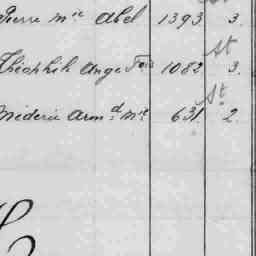 Pierre Mie Abel 1393 3.
St
Théophile Ange Fois 1082 3.
St
Médéric Armd Mie 631. 2.